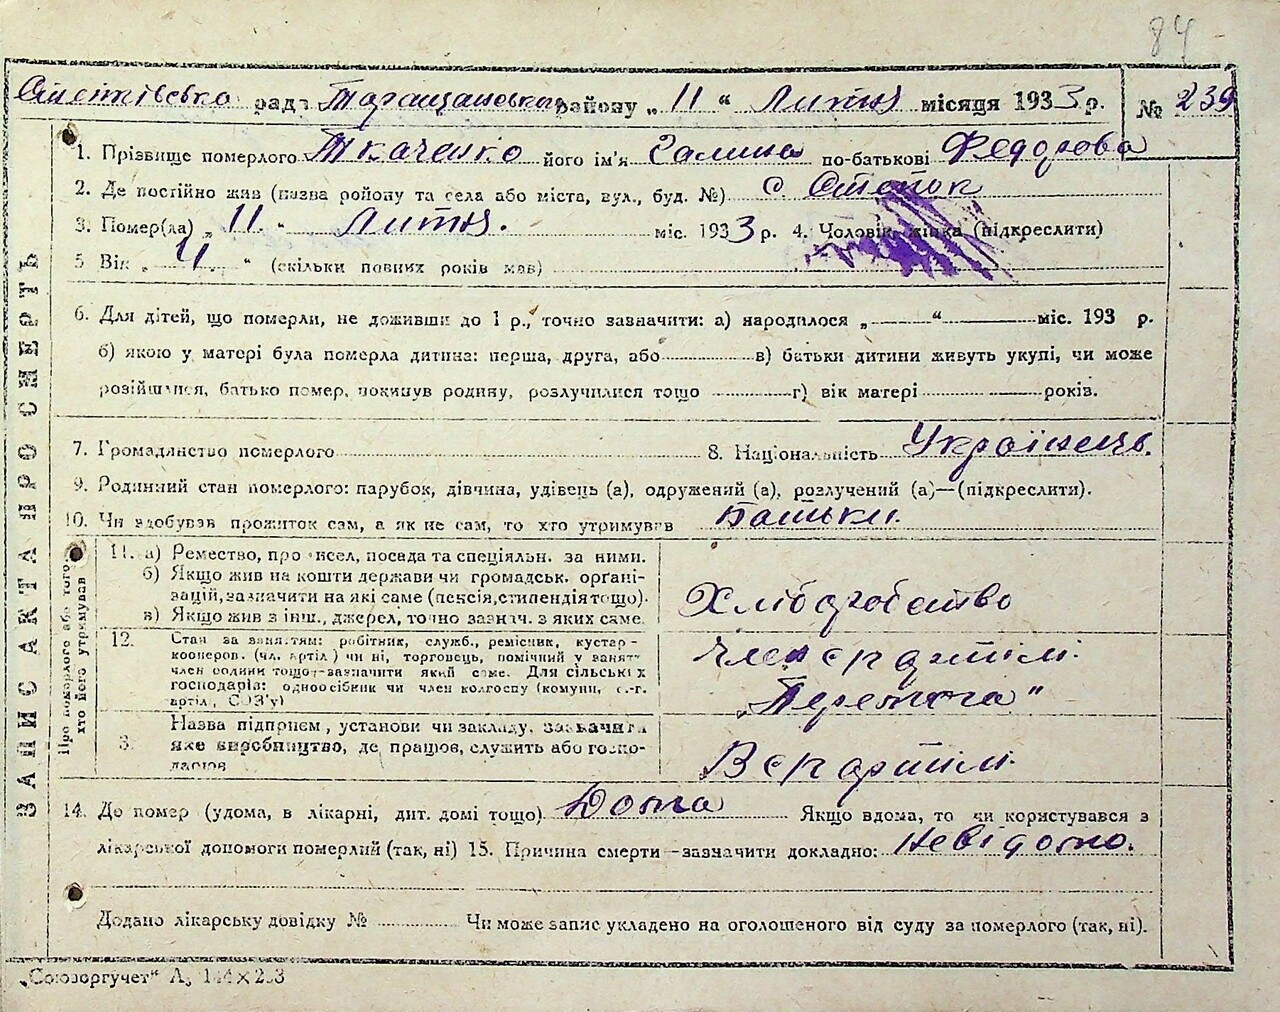 84
рада Таращанського району „ 11 “ Лютня місяця 1933 р. № 239
ЗАПИС АКТА ПРО СМЕРТЬ
1. Прізвище померлого Ткаченко його ім'я Галина по-батькові Федорова
2. Де постійно жив (назва ройону та села або міста, вул., буд. №) с. Степок
3. Помер(ла) „ 11 “ Лютня. міс. 1933 р. 4. Чоловік, жінка (підкреслити)
5 Вік „ 4. “ (скільки повних років мав)
6. Для дітей, що померли, не доживши до 1 р., точно зазначити: а) народилося „ — “ — міс. 193 р.
б) якою у матері була померла дитина: перша, друга, або — в) батьки дитини живуть укупі, чи може
розійшлися, батько помер, покинув родину, розлучилися тощо — г) вік матері — років.
7. Громадянство померлого 8. Національність Українець.
9. Родинний стан померлого: парубок, дівчина, удівець (а), одружений (а), розлучений (а)—(підкреслити).
10. Чи здобував прожиток сам, а як не сам, то хто утримував Батьки.
Про померлого або того, хто його утримував
11. а) Ремество, промисел, посада та спеціяльн. за ними.
б) Якщо жив на кошти держави чи громадськ. орґані-
зацій, зазначити на які саме (пенсія, стипендія тощо).
в) Якщо жив з інш., джерел, точно зазнач. з яких саме.
Хліборобство
12. Стан за заняттям: робітник, служб., ремісник, кустар-
кооперов. (чл. артіл) чи ні, торговець, помічний у занят.
член родини тощо-зазначити який саме. Для сільських
господарів: одноосібник чи член колгоспу (комуни, с.-г.
артіл, СОЗ'у)
Член артіли
„Перемога"
3. Назва підприєм, установи чи закладу, зазначити
яке виробництво, де, працюв, служить або госпо-
дарюв
В артіли.
14. Де помер (удома, в лікарні, дит. домі тощо) Дома Якщо вдома, то чи користувався з
лікарської допомоги померлий (так, ні) 15. Причина смерти -зазначити докладно: Невідомо.
Додано лікарську довідку № Чи може запис укладено на оголошеного від суду за померлого (так, ні).
„Союзоргучет“ А₅ 144×203